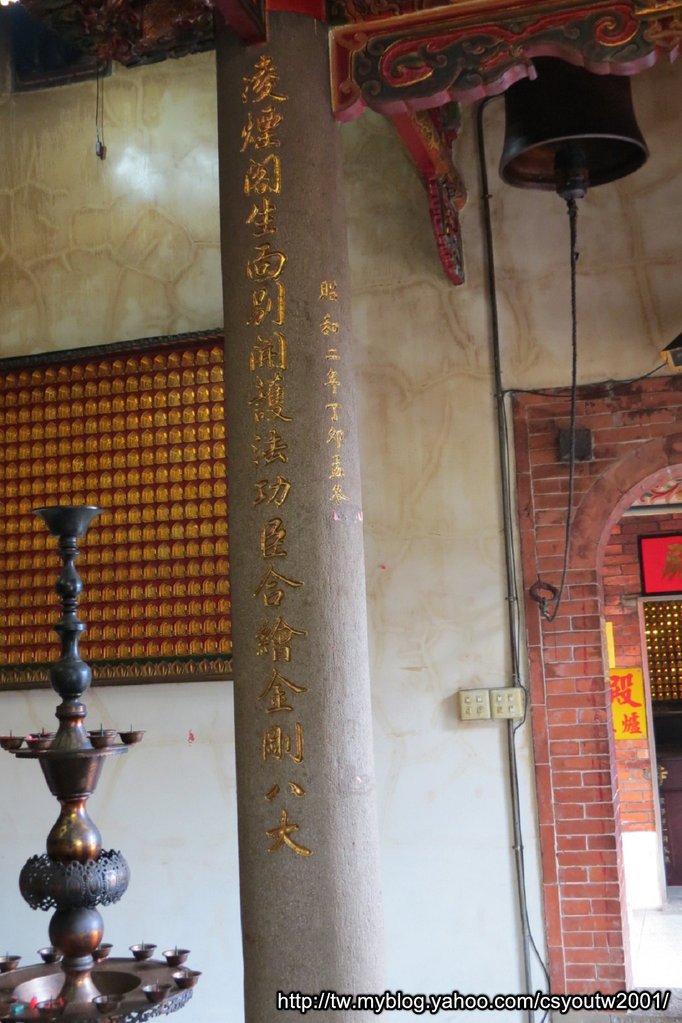 凌煙閣生面別開護法功臣合繪金剛八大
昭和二年丁卯孟冬
殿
殿
爐
http://tw.myblog.yahoo.com/csyoutw2001/